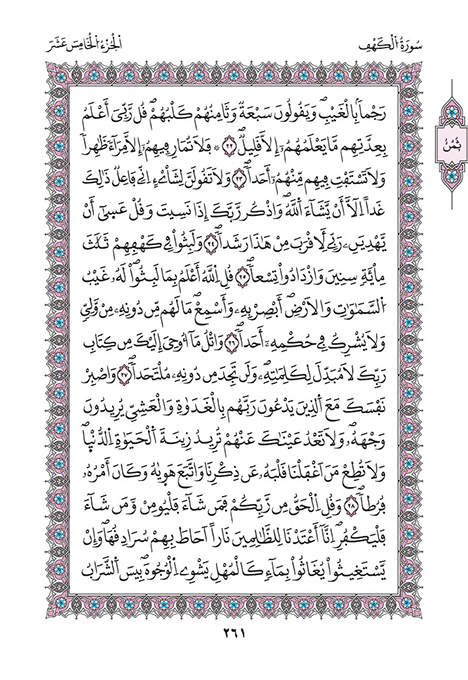 سُورَةُ الْكَهْفِ
الْجُزْءُ الْخَامِسَ عَشَرَ
رَجْماَۢ بِالْغَيْبِۖ وَيَقُولُونَ سَبْعَةٞ وَثَامِنُهُمْ كَلْبُهُمْۖ قُل رَّبِّيَ أَعْلَمُ
بِعِدَّتِهِم مَّا يَعْلَمُهُمُۥٓ إِلَّا قَلِيلٞۖ ٢٢ ۞ فَلَا تُمَارِ فِيهِمُۥٓ إِلَّا مِرَآءٗ ظَٰهِراٗۖ
وَلَا تَسْتَفْتِ فِيهِم مِّنْهُمُۥٓ أَحَداٗۖ ٢٣ وَلَا تَقُولَنَّ لِشَاْےْءٍ اِنِّے فَاعِلٞ ذَٰلِكَ
غَداً اِلَّآ أَنْ يَّشَآءَ اَللَّهُۖ وَاذْكُر رَّبَّكَ إِذَا نَسِيتَ وَقُلْ عَس۪ىٰٓ أَنْ
يَّهْدِيَنِۦ رَبِّے لِأَقْرَبَ مِنْ هَٰذَا رَشَداٗۖ ٢٤ وَلَبِثُوا۟ فِے كَهْفِهِمْ ثَلَٰثَ
مِاْئَةٖ سِنِينَ وَازْدَادُوا۟ تِسْعاٗۖ ٢٥ قُلِ اِللَّهُ أَعْلَمُ بِمَا لَبِثُوا۟ۖ لَهُۥ غَيْبُ
اُلسَّمَٰوَٰتِ وَالْأَرْضِۖ أَبْصِرْ بِهِۦ وَأَسْمِعْۖ مَا لَهُم مِّن دُونِهِۦ مِنْ وَّلِيّٖ
وَلَا يُشْرِكُ فِے حُكْمِهِۦٓ أَحَداٗۖ ٢٦ وَاتْلُ مَآ أُوحِيَ إِلَيْكَ مِن كِتَابِ
رَبِّكَ لَا مُبَدِّلَ لِكَلِمَٰتِهِۦۖ وَلَن تَجِدَ مِن دُونِهِۦ مُلْتَحَداٗۖ ٢٧ وَاصْبِرْ
نَفْسَكَ مَعَ اَلذِينَ يَدْعُونَ رَبَّهُم بِالْغَدَوٰةِ وَالْعَشِيِّ يُرِيدُونَ
وَجْهَهُۥۖ وَلَا تَعْدُ عَيْنَٰكَ عَنْهُمْ تُرِيدُ زِينَةَ اَلْحَيَوٰةِ اِلدُّنْي۪اۖ
وَلَا تُطِعْ مَنَ اَغْفَلْنَا قَلْبَهُۥ عَن ذِكْرِنَا وَاتَّبَعَ هَو۪يٰهُ وَكَانَ أَمْرُهُۥ
فُرُطاٗۖ ٢٨ وَقُلِ اِلْحَقُّ مِن رَّبِّكُمْۖ فَمَن شَآءَ فَلْيُومِنْ وَّمَن شَآءَ
فَلْيَكْفُرِۖ اِنَّآ أَعْتَدْنَا لِلظَّٰلِمِينَ نَاراً اَحَاطَ بِهِمْ سُرَادِقُهَاۖ وَإِنْ
يَّسْتَغِيثُوا۟ يُغَاثُوا۟ بِمَآءٖ كَالْمُهْلِ يَشْوِے اِلْوُجُوهَۖ بِيسَ اَلشَّرَابُ
ثُمُنُ
٢٦١